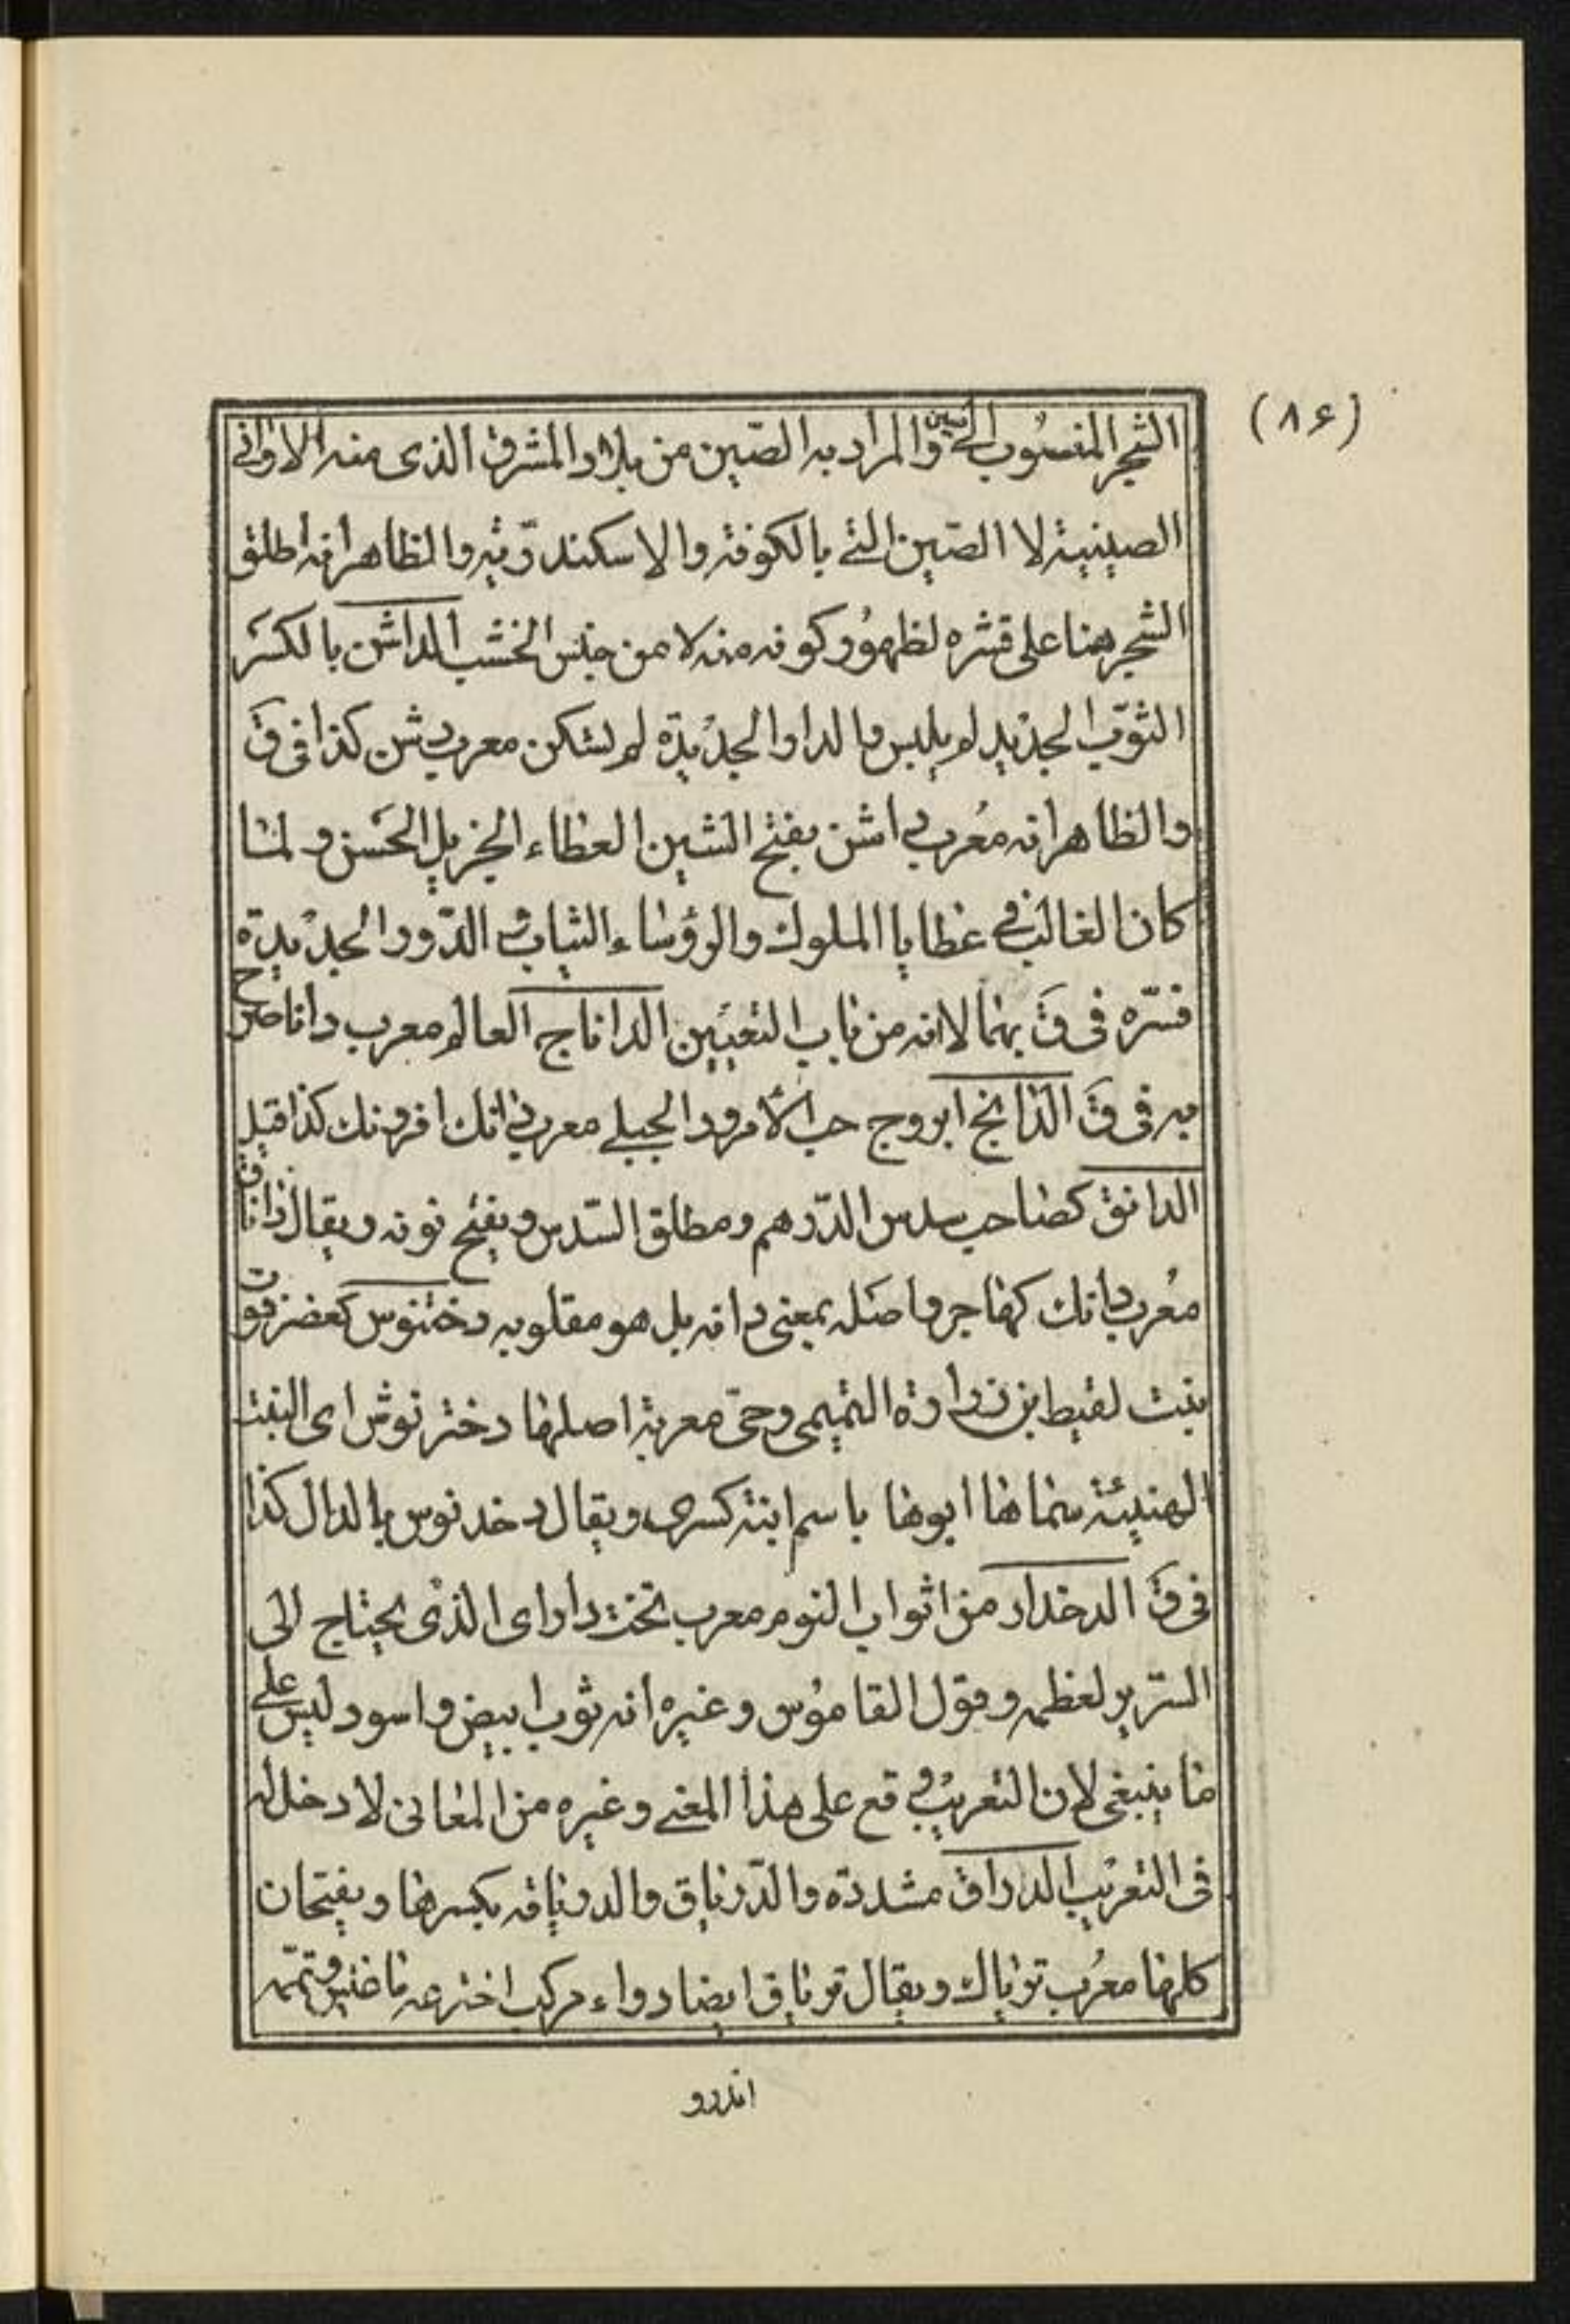 (٨۶)
الشجر المنسوب الى الصين والمراد به الصّين من بلاد المشرق الذى منه الاوانى
الصينية لا الصّين التى بالكوفة والاسكندريّة والظاهر انه اطلق
الشجر هنا على قشره لظهور كونه منه لا من جنس الخشب الداشن بالكسر
الثوب الجديد لم يلبس والدار الجديدة لم تسكن معرب دشن كذا فى ق
والظاهر انه معرب داشن بفتح الشين العطاء الجزيل الحسن ولما
كان الغالب فى عطايا الملوك والرؤساء الثياب والدّور الجديدة
فسّره فى ق بهما لا انه من باب التعيين الداناج العالم معرب دانا صرح
به فى ق الدانج ابروج حب الأمرود الجبلى معرب دانك افرونك كذا قيل
الدانق كصاحب سدس الدّرهم ومطلق السّدس ويفتح نونه ويقال داناق
معرب دانك كهاجر واصله بمعنى دانه بل هو مقلوبه دختنوس كعضرفوت
بنت لقيط بن زرارة التميمى وهى معربة اصلها دختر نوش اى البنت
الهنيئة سماها ابوها باسم ابنة كسرى ويقال دخدنوس بالدال كذا
فى ق الدخدار من اثواب النوم معرب تخت دار اى الذى يحتاج الى
السّرير لعظمه وقول القاموس وغيره انه ثوب ابيض واسود ليس على
ما ينبغى لان التعريب وقع على هذا المعنى وغيره من المعانى لا دخل له
فى التعريب الدراق مشددة والدّرياق والدرياقه بكسرها ويفتحان
كلها معرب ترياك ويقال ترياق ايضا دواء مركب اخترعه ماغنيس وتمّمه
اندرو